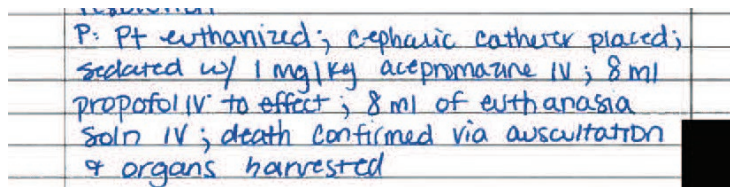 P: Pt euthanized; cephalic catheter placed;
sedated w/ 1 mg/kg acepromazine IV; 8 ml
propofol IV to effect; 8 ml of euthanasia
soln IV; death confirmed via auscultation
& organs harvested